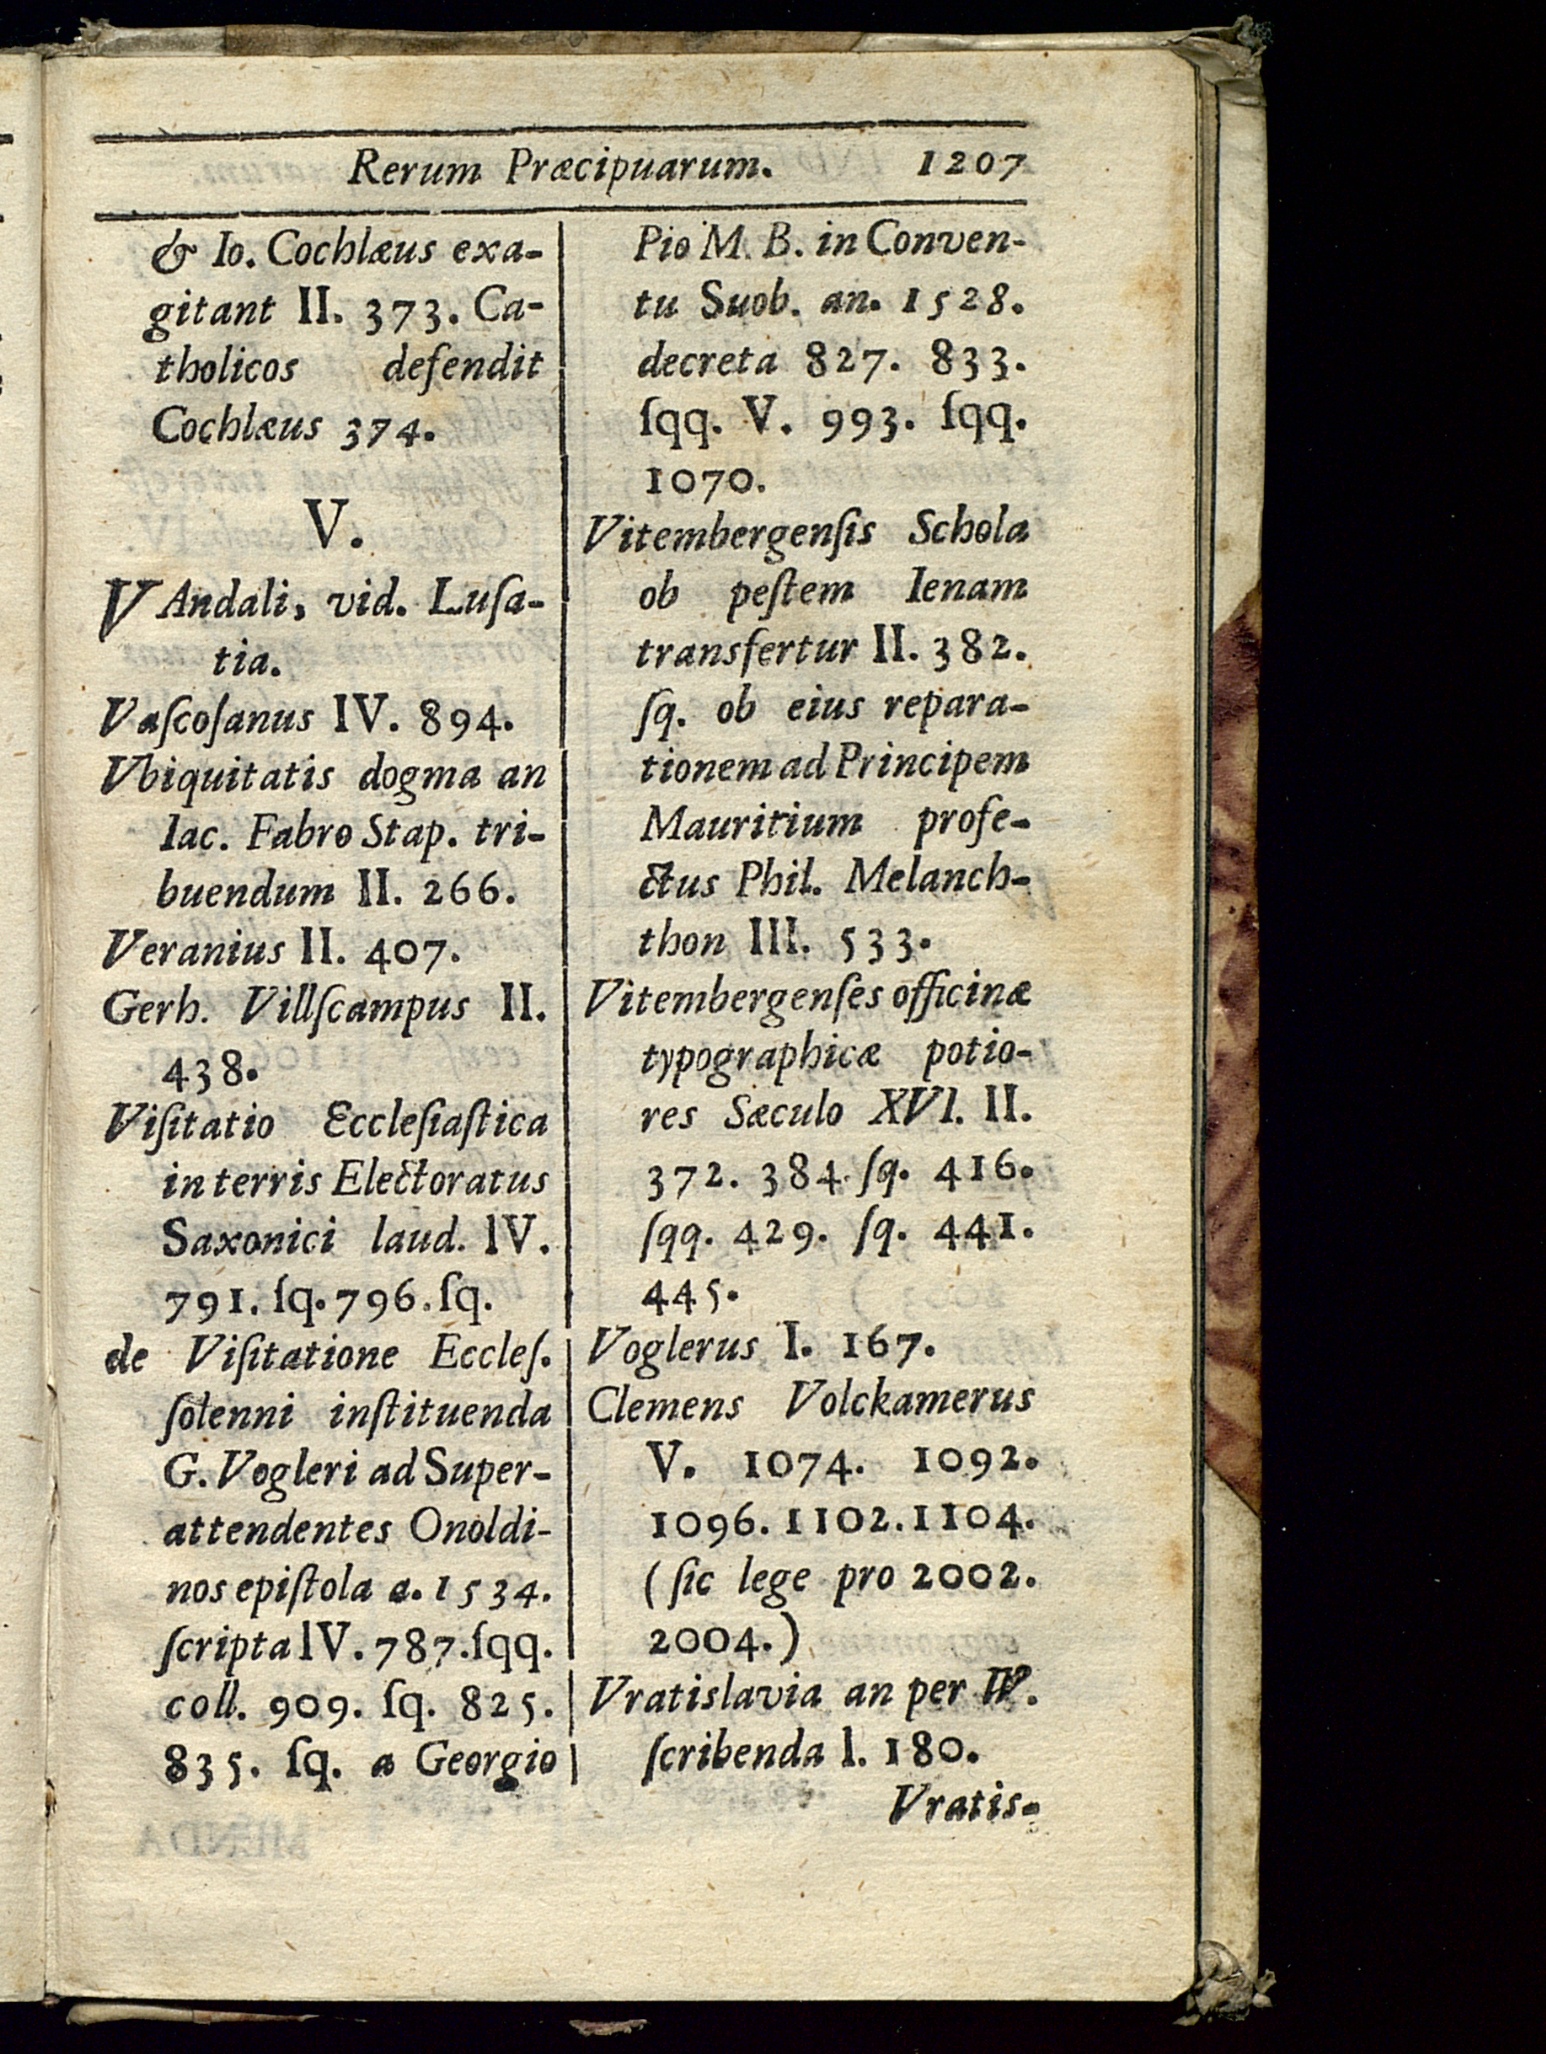 Rerum Præcipuarum. 1207
& Io. Cochlæus exa-
gitant II. 373. Ca-
tholicos defendit
Cochlæus 374.
V.
VAndali, vid. Luſa-
tia.
Vaſcoſanus IV. 894.
Vbiquitatis dogma an
Iac. Fabro Stap. tri-
buendum II. 266.
Veranius II. 407.
Gerh. Villſcampus II.
438.
Viſitatio Eccleſiaſtica
in terris Electoratus
Saxonici laud. lV.
791. ſq. 796. ſq.
de Viſitatione Eccleſ.
ſolenni inſtituenda
G. Vogleri ad Super-
attendentes Onoldi-
nos epiſtola a. 1534.
ſcripta lV. 787. ſqq.
coll. 909. ſq. 825.
835. ſq. a Georgio
Pio M. B. in Conven-
tu Suob. an. 1528.
decreta 827. 833.
ſqq. V. 993. ſqq.
1070.
Vitembergenſis Schola
ob peſtem Ienam
transfertur II. 382.
ſq. ob eius repara-
tionem ad Principem
Mauritium profe-
ctus Phil. Melanch-
thon III. 533.
Vitembergenſes officinæ
typographicæ potio-
res Sæculo XVl. II.
372. 384. ſq. 416.
ſqq. 429. ſq. 441.
445.
Voglerus I. 167.
Clemens Volckamerus
V. 1074. 1092.
1096. 1102. 1104.
(ſic lege pro 2002.
2004.)
Vratislavia an per W.
ſcribenda l. 180.
Vratis-